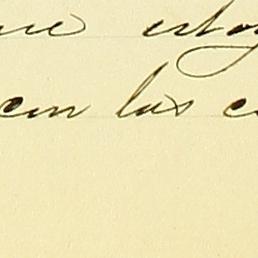 que estoy
con las c